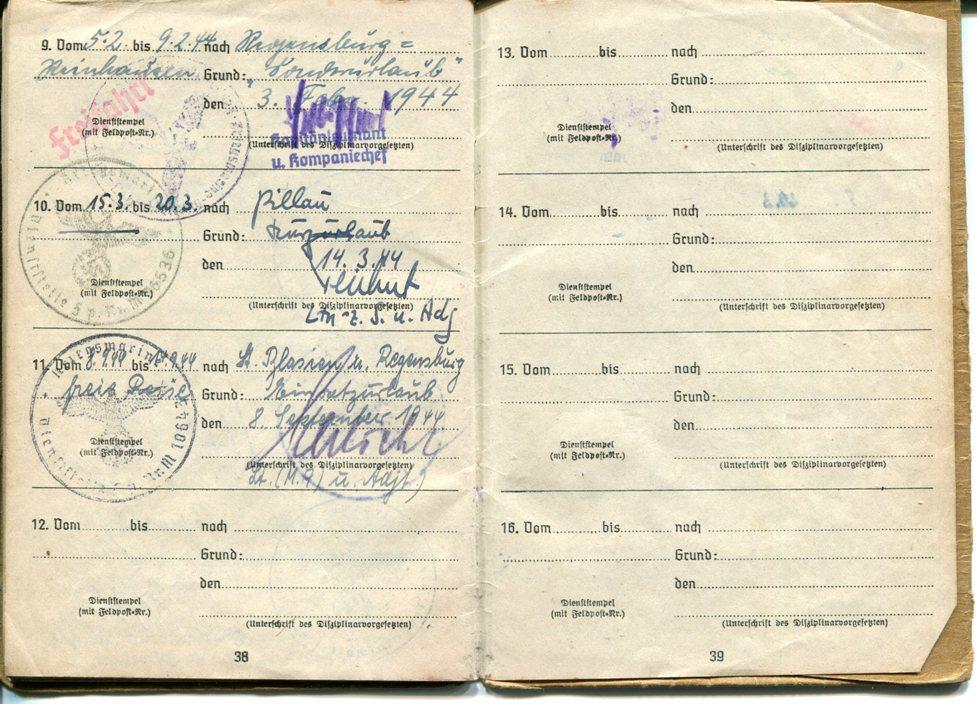 9. Vom 5.2. bis 9.2.44 nach Regensburg =
Reinhausen Grund: "Sonderurlaub"
Freifahrt
den 3. Febr. 1944
Dienststempel
(mit Feldpost-Nr.)
(Unterschrift des Disziplinarvorgesetzten)
Kapitänleutnant
u. Kompaniechef
10. Vom 15.3. bis 20.3. nach Pillau
Grund: Kurzurlaub
den 14.3.44
Dienststempel
(mit Feldpost-Nr.)
(Unterschrift des Disziplinarvorgesetzten)
Ltn. z. S. u. Adj
Kriegsmarine
Dienststelle F.p. Nr. M
11. Vom 8.9.44 bis nach St. Blasien u. Regensburg
freie Reise Grund: Einsatzurlaub
den 8. September 1944
Dienststempel
(mit Feldpost-Nr.)
(Unterschrift des Disziplinarvorgesetzten)
Lt. (M.A) u. Adjt.
Kriegsmarine
Dienststelle F.p. Nr. M 10643
12. Vom bis nach
Grund:
den
Dienststempel
(mit Feldpost-Nr.)
(Unterschrift des Disziplinarvorgesetzten)
38
13. Vom bis nach
Grund:
den
Dienststempel
(mit Feldpost-Nr.)
(Unterschrift des Disziplinarvorgesetzten)
14. Vom bis nach
Grund:
den
Dienststempel
(mit Feldpost-Nr.)
(Unterschrift des Disziplinarvorgesetzten)
15. Vom bis nach
Grund:
den
Dienststempel
(mit Feldpost-Nr.)
(Unterschrift des Disziplinarvorgesetzten)
16. Vom bis nach
Grund:
den
Dienststempel
(mit Feldpost-Nr.)
(Unterschrift des Disziplinarvorgesetzten)
39